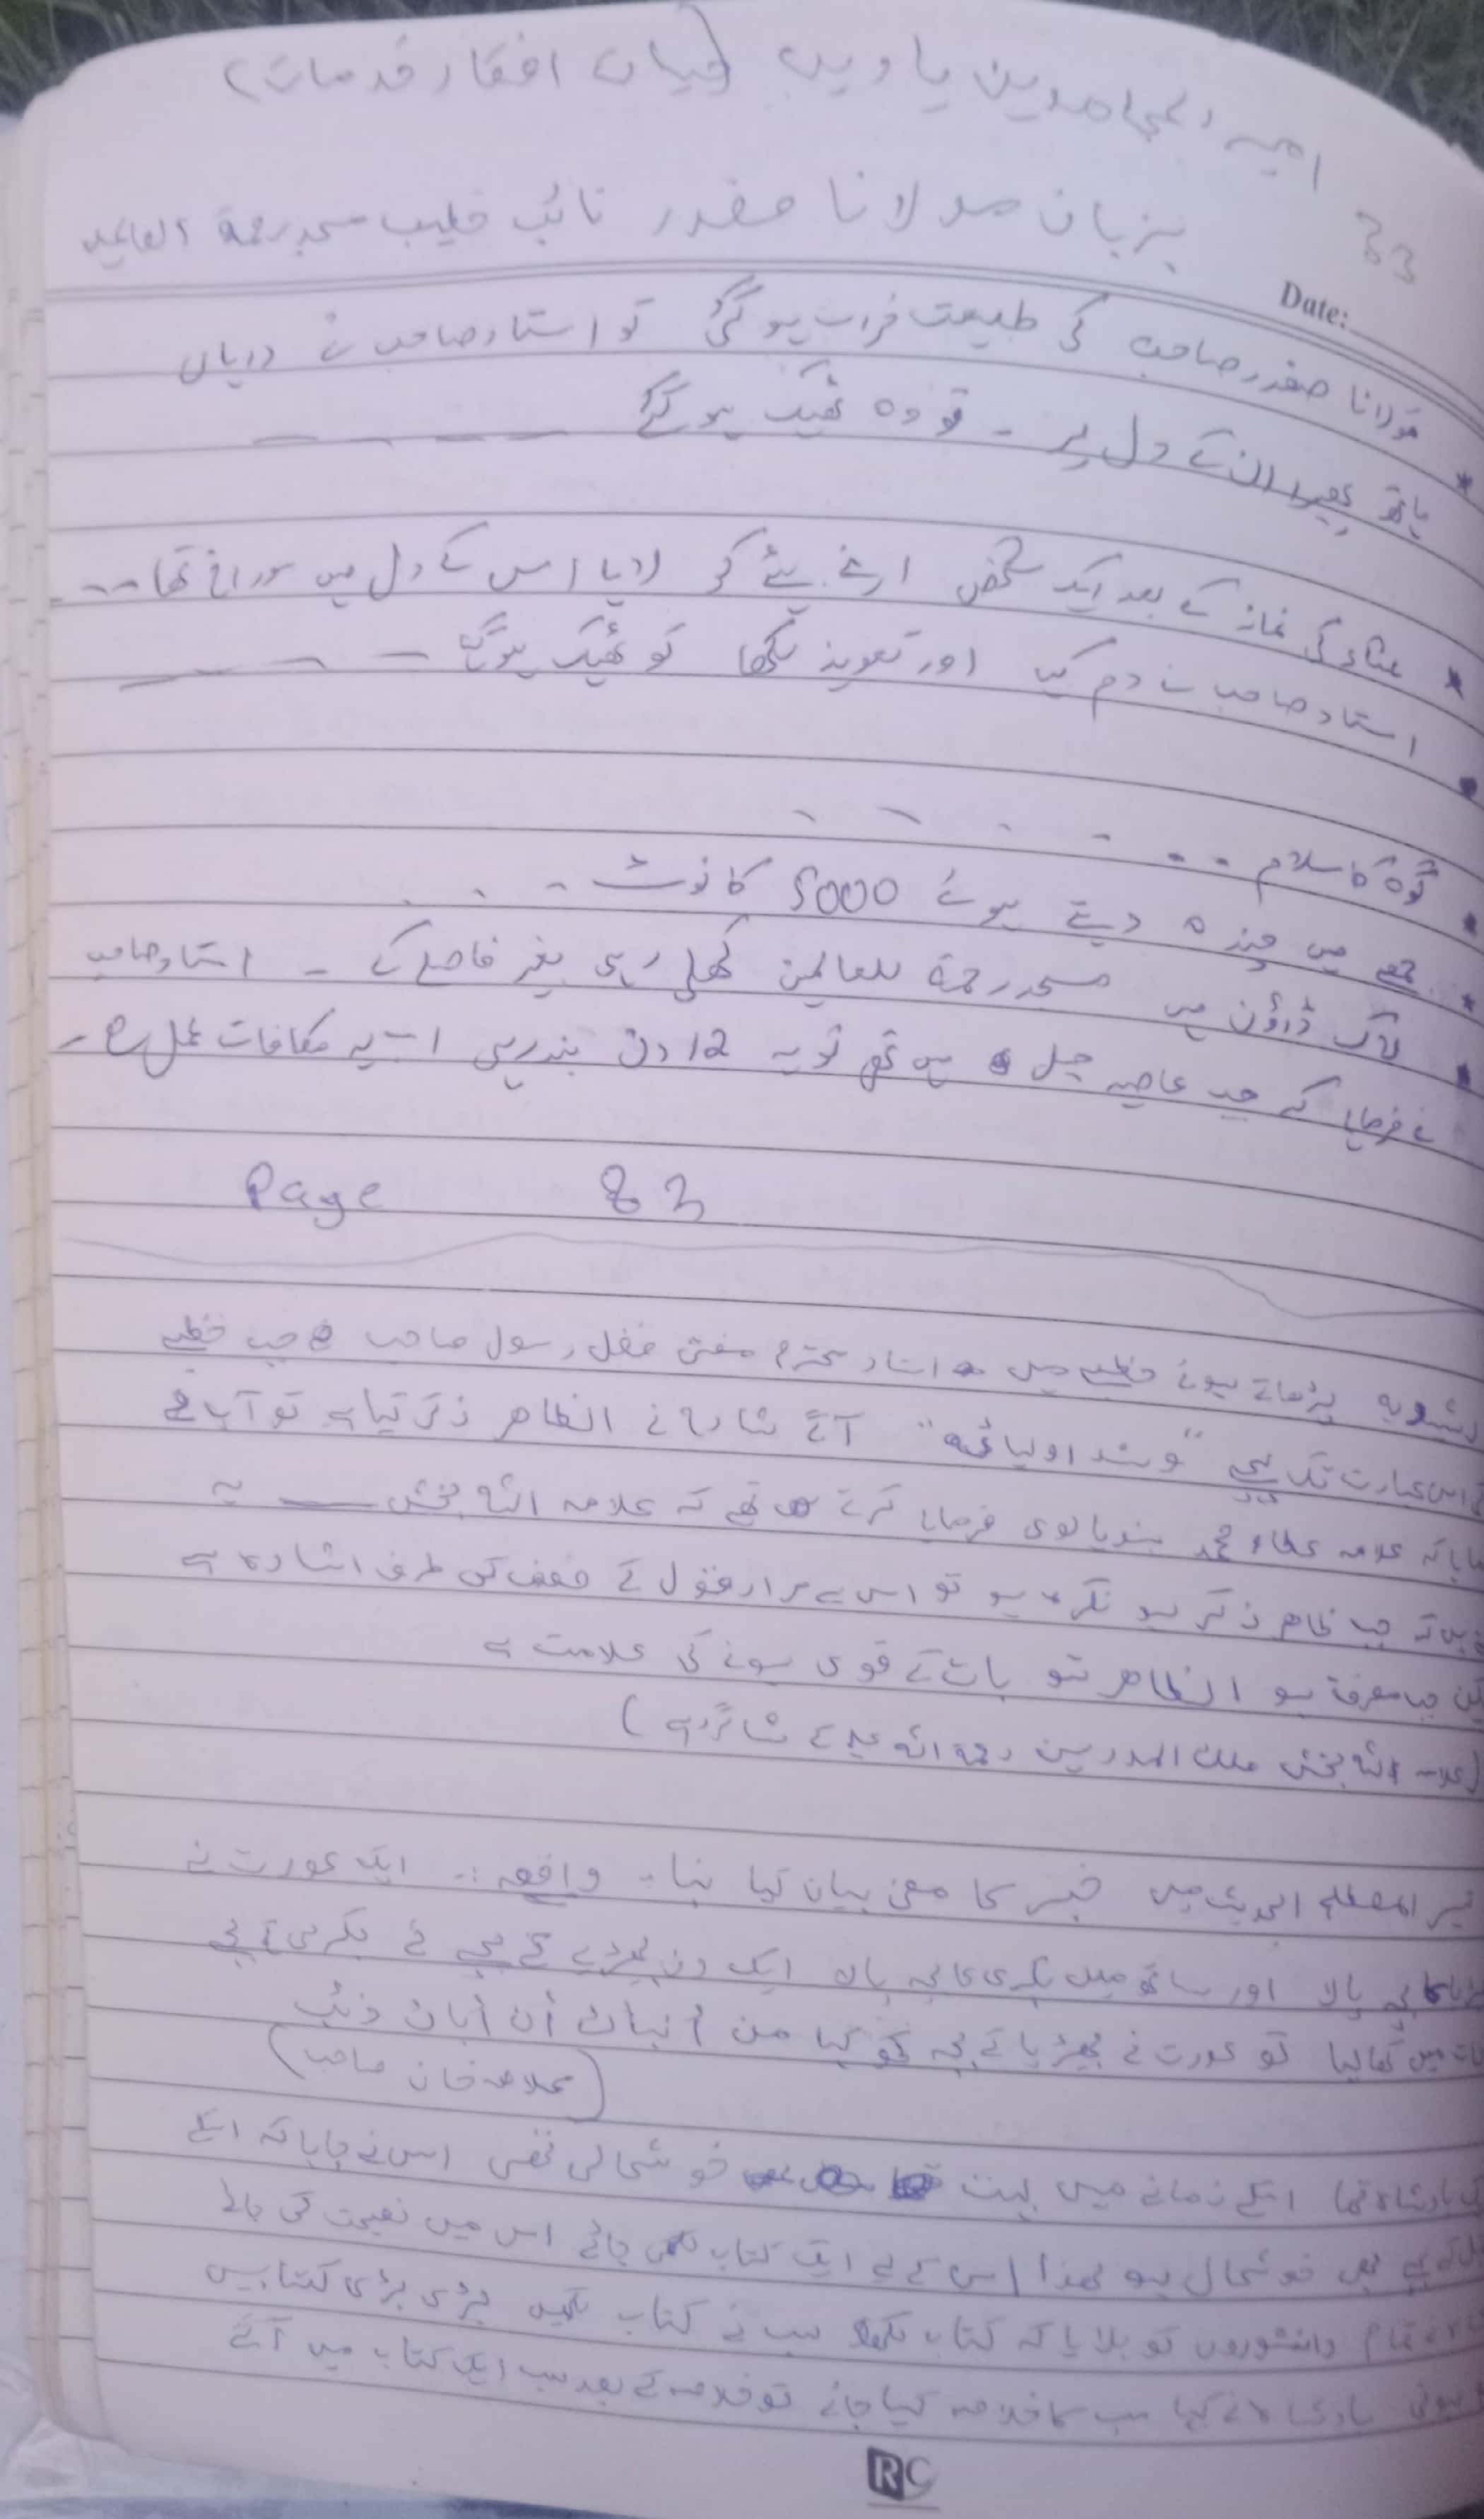 امیر المجاہدین یادیں (حیات افکار خدمات)
83
بزبان مولانا صفدر نائب خطیب مسجد رحمۃ العالمین
Date:
مولانا صفدر صاحب کی طبیعت خراب ہو گئی تو استاد صاحب نے دایاں
ہاتھ پھیرا ان کے دل پر ۔ تو وہ ٹھیک ہو گئے
عشاء کی نماز کے بعد ایک شخص اپنے بیٹے کو لایا اس کے دل میں سوراخ تھا ۔۔
استاد صاحب نے دم کیا اور تعویذ لکھا تو ٹھیک ہو گیا
گوہ کا سلام
جمعے میں چندہ دیتے ہوئے 5000 کا نوٹ
لاک ڈاؤن میں مسجد رحمۃ للعالمین کھلی رہی بغیر فاصلے کے ۔ استاد صاحب
نے فرمایا کہ جب جیل میں تھے تو یہ 12 دن بند رہی اب یہ مکافات عمل ہے ۔
Page 83
پڑھاتے ہوئے خطبے میں استاد محترم مفتی فضل رسول صاحب جب خطبے
اس عبارت تک پہنچے آگے شارح نے الظاهر ذکر کیا ہے تو آپ نے
علامہ عطاء محمد بندیالوی فرمایا کرتے تھے کہ علامہ اللہ بخش یہ
جب ظاہر ذکر ہو نکرہ ہو تو اس سے مراد قول کے ضعف کی طرف اشارہ ہے
جب معرفۃ ہو الظاهر تو بات کے قوی ہونے کی علامت ہے
(علامہ اللہ بخش ملک المدرسین رحمۃ اللہ علیہ کے شاگرد ہے)
المصطلح الحدیث میں خبر کا معنی بیان کیا نبا ۔ واقعہ :۔ ایک عورت نے
پالا اور ساتھ میں بکری کا بچہ پالا ایک دن بھیڑیے کے بچے نے بکری کے بچے
کھا لیا تو عورت نے بھیڑیا کے بچہ کو کہا من أنباك أن أباك ذئب
(علامہ خان صاحب)
بادشاہ تھا اسکے زمانے میں بہت خوشحالی تھی اس نے چاہا کہ اسکے
بھی خوشحال ہو لہذا اس کے لیے ایک کتاب لکھی جائے اس میں نصیحت کی جائے
تمام دانشوروں کو بلایا کہ کتاب لکھو سب نے کتاب لکھیں بڑی بڑی کتابیں
بادشاہ نے کہا سب کا خلاصہ کیا جائے تو خلاصہ کے بعد سب ایک کتاب میں آگئے
RC